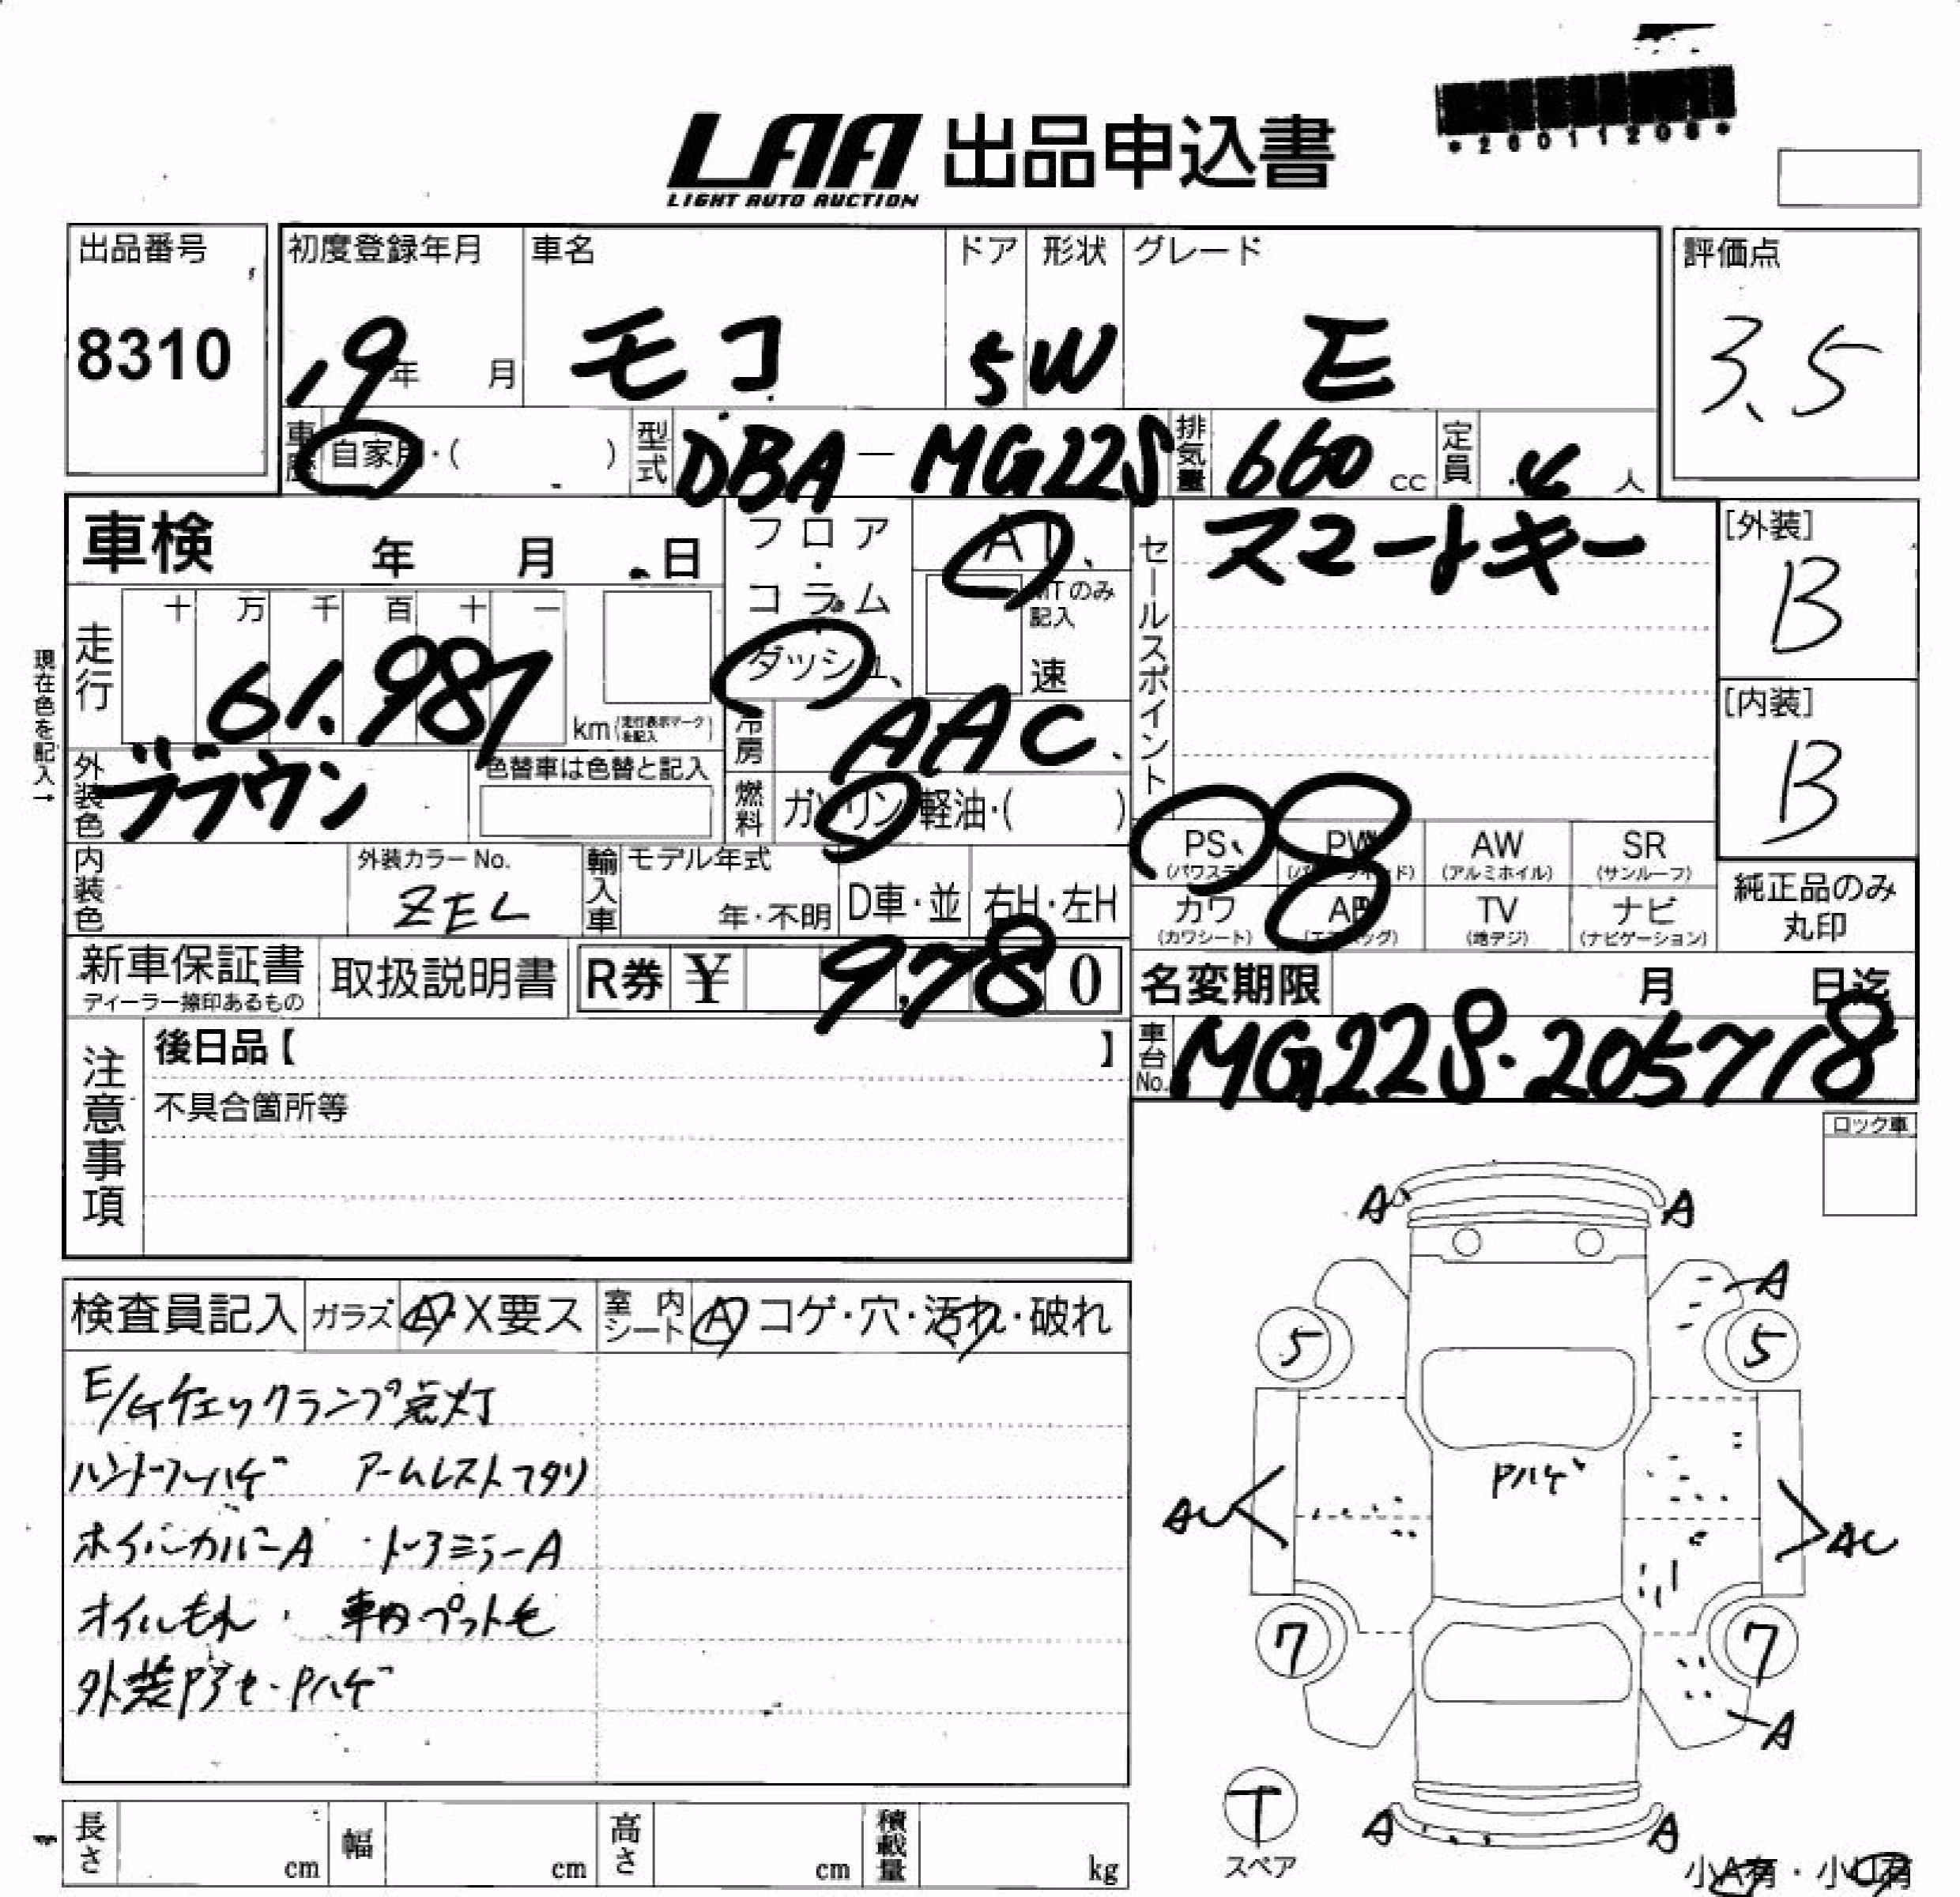 *26011208*
LAA 出品申込書
LIGHT AUTO AUCTION
出品番号
8310
初度登録年月
19年 月
車名
モコ
ドア
5
形状
W
グレード
E
評価点
3.5
車歴 自家用・( )
型式 DBA-MG22S
排気量 660 cc
定員 4 人
車検 年 月 日
フロア・コラム・ダッシュ
AT
MTのみ記入
速
セールスポイント
スマートキー
[外装]
B
[内装]
B
現在色を記入→
走行
十 万 千 百 十 一
61.987
km(走行表示マークを記入)
冷房 AAC
外装色 ブラウン
色替車は色替と記入
燃料 ガソリン・軽油・( )
PS (パワステ)
PW
AW (アルミホイル)
SR (サンルーフ)
カワ (カワシート)
AB (エアバッグ)
TV (地デジ)
ナビ (ナビゲーション)
純正品のみ丸印
内装色
外装カラーNo.
ZEL
輸入車
モデル年式
年・不明
D車・並
右H・左H
新車保証書
ディーラー捺印あるもの
取扱説明書
R券 ¥ 9.780
名変期限 月 日迄
車台No. MG22S-205718
注意事項
後日品【 】
不具合箇所等
ロック車
検査員記入
ガラス A・X要ス
室内シート A コゲ・穴・汚れ・破れ
E/Gチェックランプ点灯
ハンドルハゲ アームレストヘタリ
ホイルカバーA ・ドアミラーA
オイルもれ・ 車内ペット毛
外装色アセ・Pハゲ
A A
A
5 5
Pハゲ
AU AU
7 7
A
T
スペア
A A
小A有・小U有
長さ cm
幅 cm
高さ cm
積載量 kg